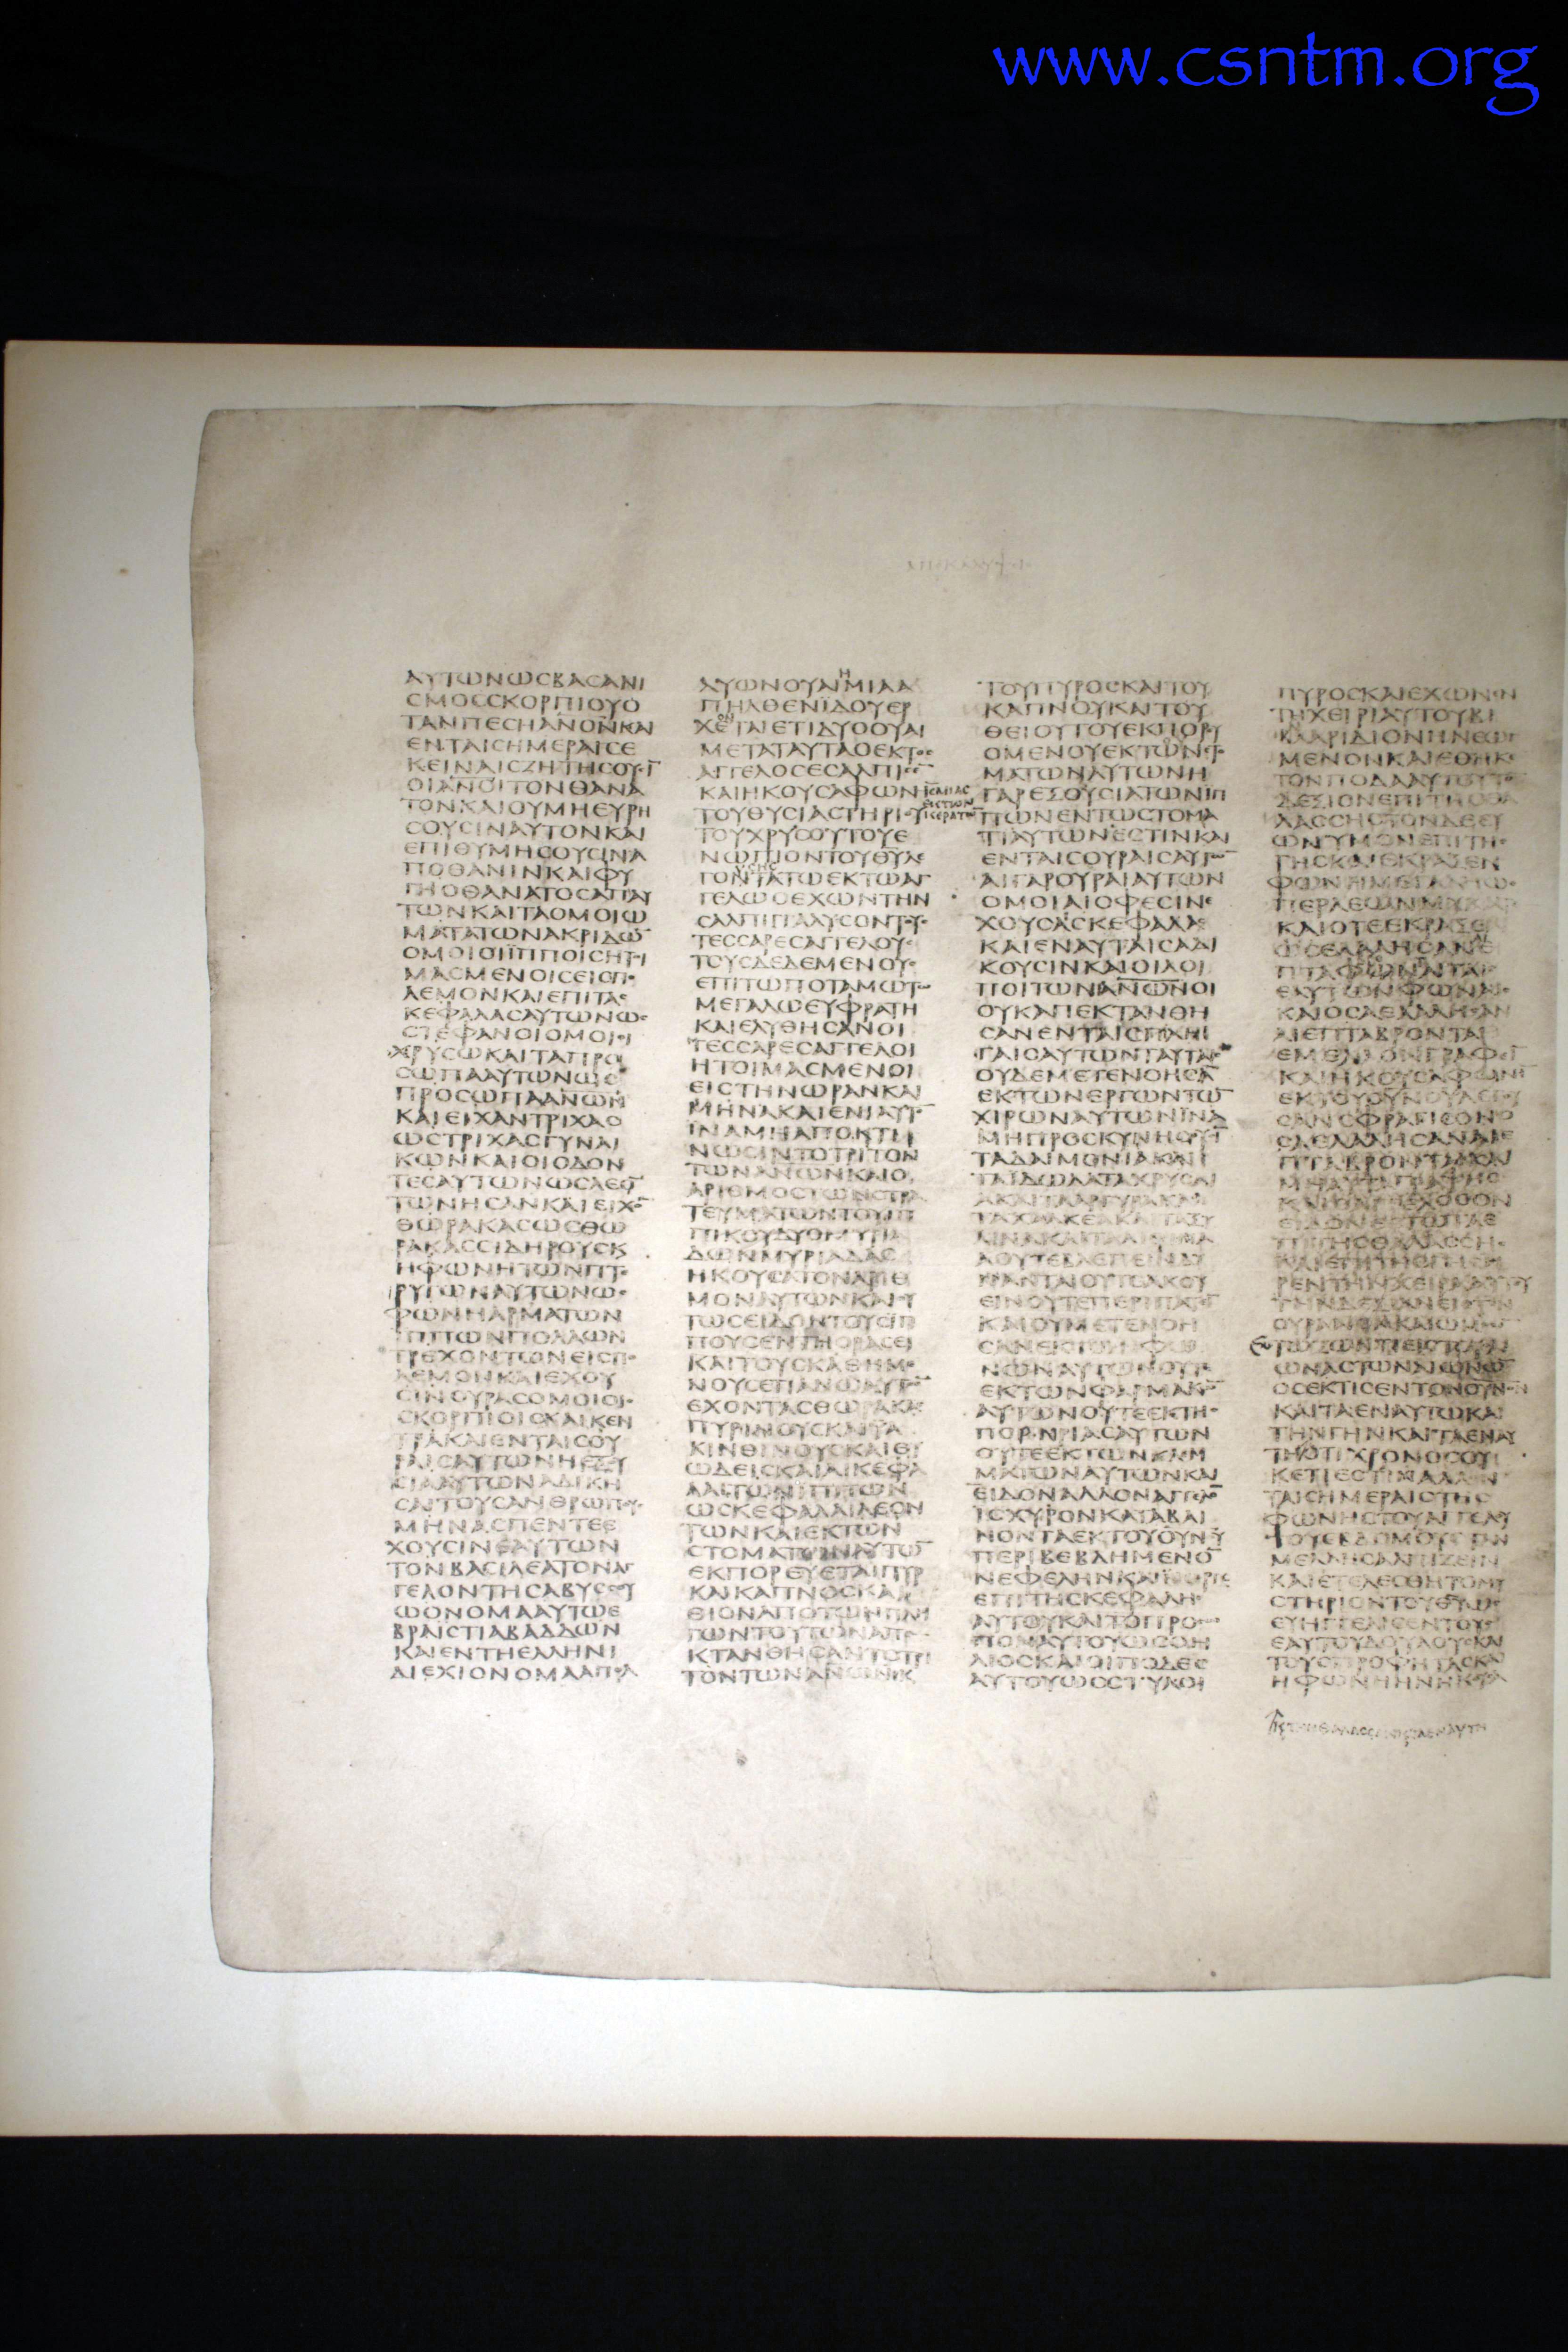 www.csntm.org
ΑΥΤΩΝΩϹΒΑϹΑΝΙ
ϹΜΟϹϹΚΟΡΠΙΟΥΟ
ΤΑΝΠΕϹΗΑΝΟΝΚΑΙ
ΕΝΤΑΙϹΗΜΕΡΑΙϹΕ
ΚΕΙΝΑΙϹΖΗΤΗϹΟΥϹΙ
ΟΙΑΝΟΙΤΟΝΘΑΝΑ
ΤΟΝΚΑΙΟΥΜΗΕΥΡΗ
ϹΟΥϹΙΝΑΥΤΟΝΚΑΙ
ΕΠΙΘΥΜΗϹΟΥϹΙΝΑ
ΠΟΘΑΝΙΝΚΑΙΦΥ
ΓΗΟΘΑΝΑΤΟϹΑΠΑΥ
ΤΩΝΚΑΙΤΑΟΜΟΙΩ
ΜΑΤΑΤΩΝΑΚΡΙΔΩ̅
ΟΜΟΙΟΙΪΠΠΟΙϹΗΤΟΙ
ΜΑϹΜΕΝΟΙϹΕΙϹΠΟ
ΛΕΜΟΝΚΑΙΕΠΙΤΑϹ
ΚΕΦΑΛΑϹΑΥΤΩΝΩϹ
ϹΤΕΦΑΝΟΙΟΜΟΙΟΙ
ΧΡΥϹΩΚΑΙΤΑΠΡΟ
ϹΩΠΑΑΥΤΩΝΩϹ
ΠΡΟϹΩΠΑΑΝΩΝ
ΚΑΙΕΙΧΑΝΤΡΙΧΑϹ
ΩϹΤΡΙΧΑϹΓΥΝΑΙ
ΚΩΝΚΑΙΟΙΟΔΟΝ
ΤΕϹΑΥΤΩΝΩϹΛΕΟ̅
ΤΩΝΗϹΑΝΚΑΙΕΙΧΟ̅
ΘΩΡΑΚΑϹΩϹΘΩ
ΡΑΚΑϹϹΙΔΗΡΟΥϹΚ
ΗΦΩΝΗΤΩΝΠΤΕ
ΡΥΓΩΝΑΥΤΩΝΩϹ
ΦΩΝΗΑΡΜΑΤΩΝ
ΙΠΠΩΝΠΟΛΛΩΝ
ΤΡΕΧΟΝΤΩΝΕΙϹΠΟ
ΛΕΜΟΝΚΑΙΕΧΟΥ
ϹΙΝΟΥΡΑϹΟΜΟΙΟΙϹ
ϹΚΟΡΠΙΟΙϹΚΑΙΚΕΝ
ΤΡΑΚΑΙΕΝΤΑΙϹΟΥ
ΡΑΙϹΑΥΤΩΝΗΕΞΟΥ
ϹΙΑΑΥΤΩΝΑΔΙΚΗ
ϹΑΙΤΟΥϹΑΝΘΡΩΠΟΥϹ
ΜΗΝΑϹΠΕΝΤΕΕ
ΧΟΥϹΙΝΕΑΥΤΩΝ
ΤΟΝΒΑϹΙΛΕΑΤΟΝΑΓ
ΓΕΛΟΝΤΗϹΑΒΥϹϹΟΥ
ΩΟΝΟΜΑΑΥΤΩΕ
ΒΡΑΙϹΤΙΑΒΑΔΔΩΝ
ΚΑΙΕΝΤΗΕΛΛΗΝΙ
ΔΙΕΧΙΟΝΟΜΑΑΠΟΛ
ΛΥΩΝΟΥΑΙΗΜΙΑΑ
ΠΗΛΘΕΝΪΔΟΥΕΡ
ΧΕΤΑΙΕΤΙΔΥΟΟΥΑΙ
ΜΕΤΑΤΑΥΤΑΟΕΚΤΟϹ
ΑΓΓΕΛΟϹΕϹΑΛΠΙϹΕ̅
ΚΑΙΗΚΟΥϹΑΦΩΝΗ
ΤΟΥΘΥϹΙΑϹΤΗΡΙΟΥ
ΤΟΥΧΡΥϹΟΥΤΟΥΕ
ΝΩΠΙΟΝΤΟΥΘΥΛΕ
ΓΟΝΤΑΤΩΕΚΤΩΑΓ
ΓΕΛΩΟΕΧΩΝΤΗΝ
ϹΑΛΠΙΓΓΑΛΥϹΟΝΤΟΥϹ
ΤΕϹϹΑΡΕϹΑΓΓΕΛΟΥϹ
ΤΟΥϹΔΕΔΕΜΕΝΟΥϹ
ΕΠΙΤΩΠΟΤΑΜΩΤΩ
ΜΕΓΑΛΩΕΥΦΡΑΤΗ
ΚΑΙΕΛΥΘΗϹΑΝΟΙ
ΤΕϹϹΑΡΕϹΑΓΓΕΛΟΙ
ΗΤΟΙΜΑϹΜΕΝΟΙ
ΕΙϹΤΗΝΩΡΑΝΚΑΙ
ΜΗΝΑΚΑΙΕΝΙΑΥΤΟ̅
ΙΝΑΜΗΑΠΟΚΤΙ
ΝΩϹΙΝΤΟΤΡΙΤΟΝ
ΤΩΝΑΝΩΝΚΑΙΟ
ΑΡΙΘΜΟϹΤΩΝϹΤΡΑ
ΤΕΥΜΑΤΩΝΤΟΥΙΠ
ΠΙΚΟΥΔΥΟΜΥΡΙΑ
ΔΩΝΜΥΡΙΑΔΑϹ
ΗΚΟΥϹΑΤΟΝΑΡΙΘ
ΜΟΝΑΥΤΩΝΚΑΙΟΥ
ΤΩϹΕΙΔΟΝΤΟΥϹΙΠ
ΠΟΥϹΕΝΤΗΟΡΑϹΕΙ
ΚΑΙΤΟΥϹΚΑΘΗΜΕ
ΝΟΥϹΕΠΑΝΩΑΥΤΩ̅
ΕΧΟΝΤΑϹΘΩΡΑΚΑϹ
ΠΥΡΙΝΟΥϹΚΑΙΥΑ
ΚΙΝΘΙΝΟΥϹΚΑΙΘΙ
ΩΔΕΙϹΚΑΙΑΙΚΕΦΑ
ΛΑΙΤΩΝΙΠΠΩΝ
ΩϹΚΕΦΑΛΑΙΛΕΟΝ
ΤΩΝΚΑΙΕΚΤΩΝ
ϹΤΟΜΑΤΩΝΑΥΤΩ̅
ΕΚΠΟΡΕΥΕΤΑΙΠΥΡ
ΚΑΙΚΑΠΝΟϹΚΑΙ
ΘΙΟΝΑΠΟΤΩΝΠΛΗ
ΓΩΝΤΟΥΤΩΝΑΠΕ
ΚΤΑΝΘΗϹΑΝΤΟΤΡΙ
ΤΟΝΤΩΝΑΝΩΝΕΚ
ΤΟΥΠΥΡΟϹΚΑΙΤΟΥ
ΚΑΠΝΟΥΚΑΙΤΟΥ
ΘΕΙΟΥΤΟΥΕΚΠΟΡΕΥ
ΟΜΕΝΟΥΕΚΤΩΝϹΤΟ
ΜΑΤΩΝΑΥΤΩΝΗ
ΓΑΡΕΞΟΥϹΙΑΤΩΝΙΠ
ΠΩΝΕΝΤΩϹΤΟΜΑ
ΤΙΑΥΤΩΝΕϹΤΙΝΚΑΙ
ΕΝΤΑΙϹΟΥΡΑΙϹΑΥΤΩ̅
ΑΙΓΑΡΟΥΡΑΙΑΥΤΩΝ
ΟΜΟΙΑΙΟΦΕϹΙΝΕ
ΧΟΥϹΑΙϹΚΕΦΑΛΑϹ
ΚΑΙΕΝΑΥΤΑΙϹΑΔΙ
ΚΟΥϹΙΝΚΑΙΟΙΛΟΙ
ΠΟΙΤΩΝΑΝΩΝΟΙ
ΟΥΚΑΠΕΚΤΑΝΘΗ
ϹΑΝΕΝΤΑΙϹΠΛΗ
ΓΑΙϹΑΥΤΩΝΤΑΥΤΑΙϹ
ΟΥΔΕΜΕΤΕΝΟΗϹΑ̅
ΕΚΤΩΝΕΡΓΩΝΤΩ̅
ΧΙΡΩΝΑΥΤΩΝΪΝΑ
ΜΗΠΡΟϹΚΥΝΗϹΟΥϹΙ̅
ΤΑΔΑΙΜΟΝΙΑΚΑΙ
ΤΑΪΔΩΛΑΤΑΧΡΥϹΑΙ
ΑΚΑΙΤΑΑΡΓΥΡΑΚΑΙ
ΤΑΧΑΛΚΕΑΚΑΙΤΑΞΥ
ΛΙΝΑΚΑΙΤΑΛΙΘΙΝΑ
ΑΟΥΤΕΒΛΕΠΕΙΝΔΥ
ΝΑΝΤΑΙΟΥΤΕΑΚΟΥ
ΕΙΝΟΥΤΕΠΕΡΙΠΑΤΙ̅
ΚΑΙΟΥΜΕΤΕΝΟΗ
ϹΑΝΕΚΤΩΝΦΟ
ΝΩΝΑΥΤΩΝΟΥΤΕ
ΕΚΤΩΝΦΑΡΜΑΚΩ̅
ΑΥΤΩΝΟΥΤΕΕΚΤΗϹ
ΠΟΡΝΡΙΑϹΑΥΤΩΝ
ΟΥΤΕΕΚΤΩΝΚΛΕΜ
ΜΑΤΩΝΑΥΤΩΝΚΑΙ
ΕΙΔΟΝΑΛΛΟΝΑΓΓΕΛΟ̅
ΙϹΧΥΡΟΝΚΑΤΑΒΑΙ
ΝΟΝΤΑΕΚΤΟΥΟΥΝΟΥ
ΠΕΡΙΒΕΒΛΗΜΕΝΟ̅
ΝΕΦΕΛΗΝΚΑΙΗΘΡΙΞ
ΕΠΙΤΗϹΚΕΦΑΛΗϹ
ΑΥΤΟΥΚΑΙΤΟΠΡΟϹΩ
ΠΟΝΑΥΤΟΥΩϹΟΗ
ΛΙΟϹΚΑΙΟΙΠΟΔΕϹ
ΑΥΤΟΥΩϹϹΤΥΛΟΙ
ΠΥΡΟϹΚΑΙΕΧΩΝΕΝ
ΤΗΧΕΙΡΙΑΥΤΟΥΒΙ
ΒΛΑΡΙΔΙΟΝΗΝΕΩΓ
ΜΕΝΟΝΚΑΙΕΘΗΚΕ
ΤΟΝΠΟΔΑΑΥΤΟΥΤΟ̅
ΔΕΞΙΟΝΕΠΙΤΗϹΘΑ
ΛΑϹϹΗϹΤΟΝΔΕΕΥ
ΩΝΥΜΟΝΕΠΙΤΗϹ
ΓΗϹΚΑΙΕΚΡΑΞΕΝ
ΦΩΝΗΜΕΓΑΛΗΩϹ
ΠΕΡΛΕΩΝΜΥΚΑΤΑΙ
ΚΑΙΟΤΕΕΚΡΑΞΕ
ΕΑΥΤΩΝΦΩΝΑΙϹ
ΚΑΙΟϹΑΕΛΑΛΗϹΑΝ
ΑΙΕΠΤΑΒΡΟΝΤΑΙ
ΕΜΕΛΛΟΝΓΡΑΦΕΙ̅
ΚΑΙΗΚΟΥϹΑΦΩΝΗ̅
ΕΚΤΟΥΟΥΝΟΥΛΕΓΟΥ
ϹΑΝϹΦΡΑΓΙϹΟΝΟ
ϹΑΕΛΑΛΗϹΑΝΑΙΕ
ΠΤΑΒΡΟΝΤΑΙΚΑΙ
ΩΝΑϹΤΩΝΑΙΩΝΩ̅
ΟϹΕΚΤΙϹΕΝΤΟΝΟΥΝΟΝ
ΚΑΙΤΑΕΝΑΥΤΩΚΑΙ
ΤΗΝΓΗΝΚΑΙΤΑΕΝΑΥ
ΤΗΟΤΙΧΡΟΝΟϹΟΥ
ΚΕΤΙΕϹΤΙΝΑΛΛΕΝ
ΤΑΙϹΗΜΕΡΑΙϹΤΗϹ
ΦΩΝΗϹΤΟΥΑΓΓΕΛΟΥ
ΤΟΥΕΒΔΟΜΟΥΟΤΑΝ
ΜΕΛΛΗϹΑΛΠΙΖΕΙΝ
ΚΑΙΕΤΕΛΕϹΘΗΤΟΜΥ
ϹΤΗΡΙΟΝΤΟΥΘΥΩϹ
ΕΥΗΓΓΕΛΙϹΕΝΤΟΥϹ
ΕΑΥΤΟΥΔΟΥΛΟΥϹΚΑΙ
ΤΟΥϹΠΡΟΦΗΤΑϹΚΑΙ
ΗΦΩΝΗΗΝΗΚΟΥϹΑ